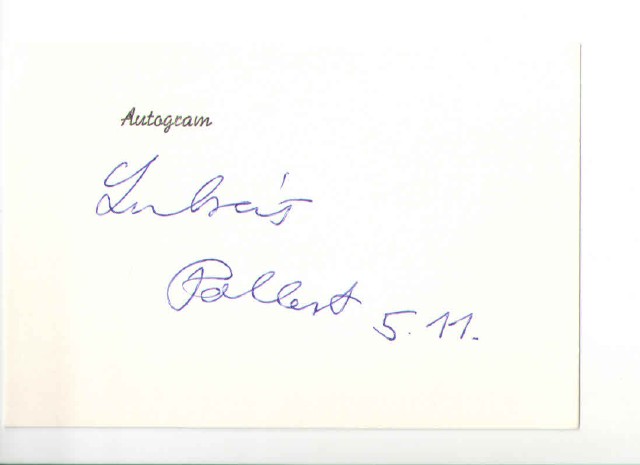 Autogram
Lukáš
Pollert 5. 11.